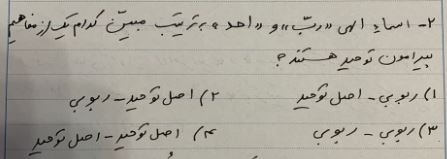 ۲- اسماء الهی «ربّ» و «احد» به ترتیب مبیّن کدام یک از مفاهیم
پیرامون توحید هستند؟
۱) ربوبی - اصل توحید ۲) اصل توحید - ربوبی
۳) ربوبی - ربوبی ۴) اصل توحید - اصل توحید